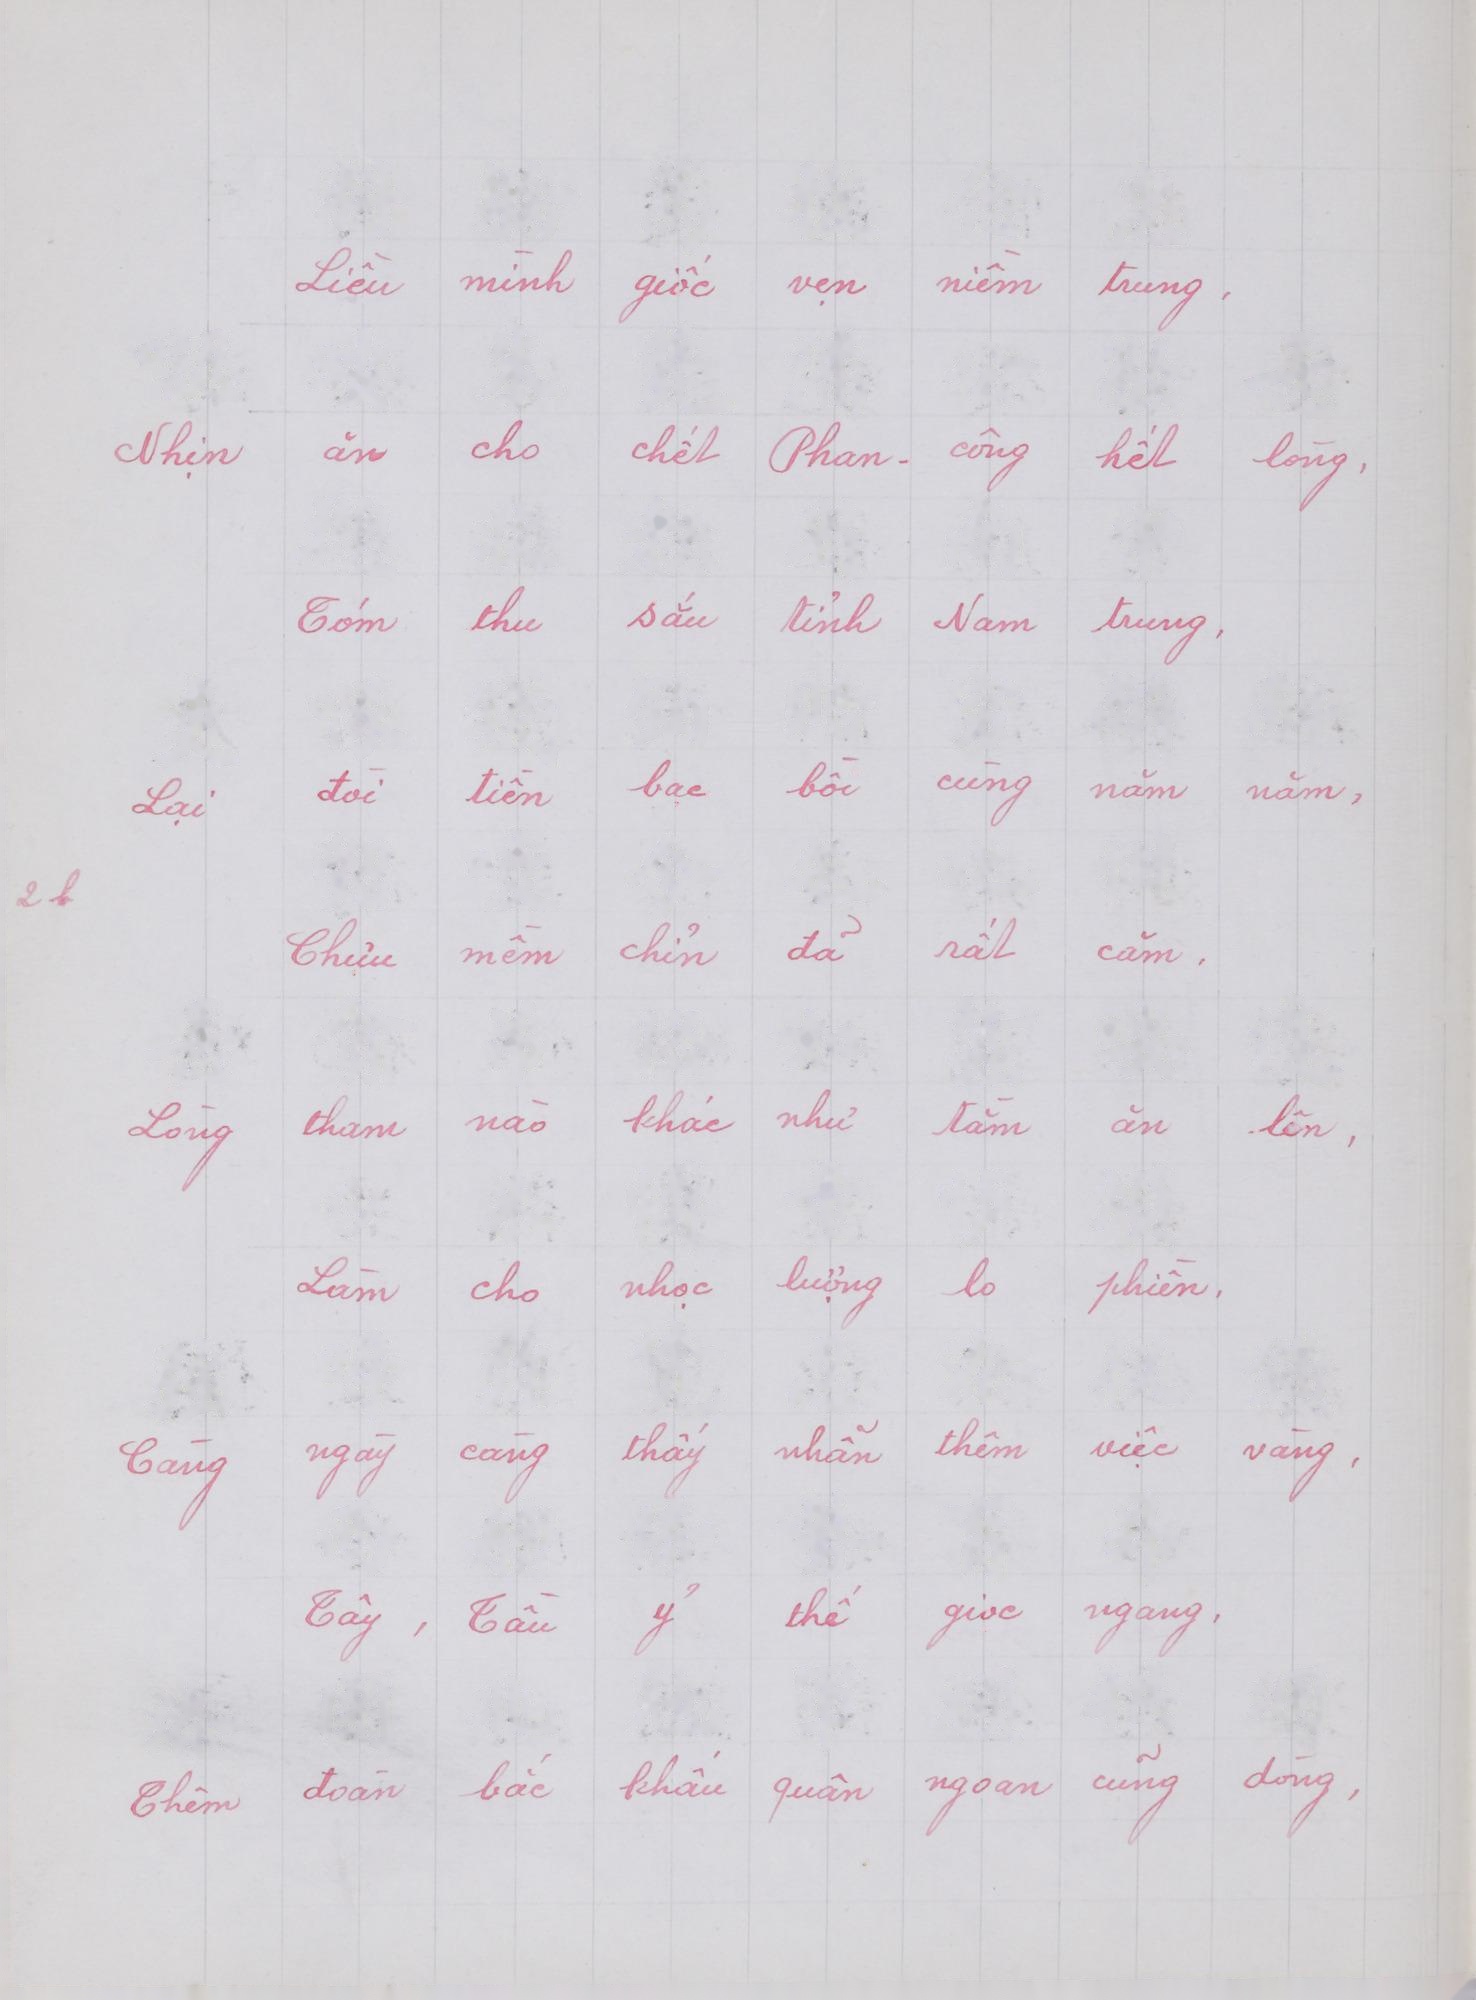 Liều mình giốc vẹn niềm trung,
Nhịn ăn cho chết Phan-công hết lòng,
Tóm thu sáu tỉnh Nam trung,
Lại đòi tiền bạc bồi cùng năm năm,
2 b
Chửu mềm chỉn đã rất căm,
Lòng tham nào khác như tằm ăn lên,
Làm cho nhọc lượng lo phiền,
Càng ngày càng thấy nhẫn thêm việc vàng,
Tây, Tầu ỷ thế giọc ngang,
Thêm đoàn bắc khấu quân ngoan cũng dòng,